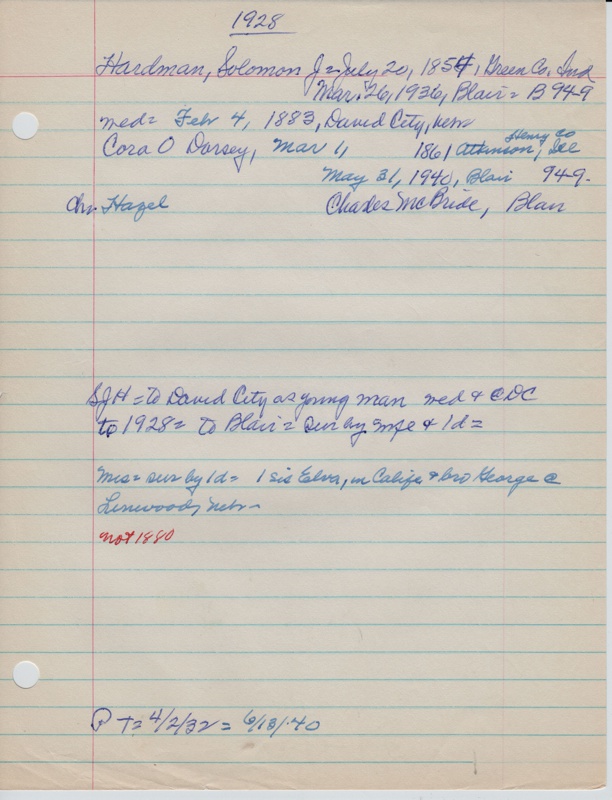 1928
Hardman, Solomon J = July 20, 1854, Green Co. Ind
Mar. 26, 1936, Blair = B 94-9
med = Febr 4, 1883, David City, Nebr
Henry Co
Cora O Dorsey, Mar 1, 1861 Atkinson, Ill
May 31, 1940, Blair 94-9-
Chr. Hazel Charles McBride, Blair
SJH = to David City as young man med & CDC
to 1928 = to Blair = sur by wife & 1d =
Mrs = sur by 1d = 1 sis Elva, in Calif & bro George @
Linwood, Nebr -
not 1880
P T = 4/2/32 = 6/13/40